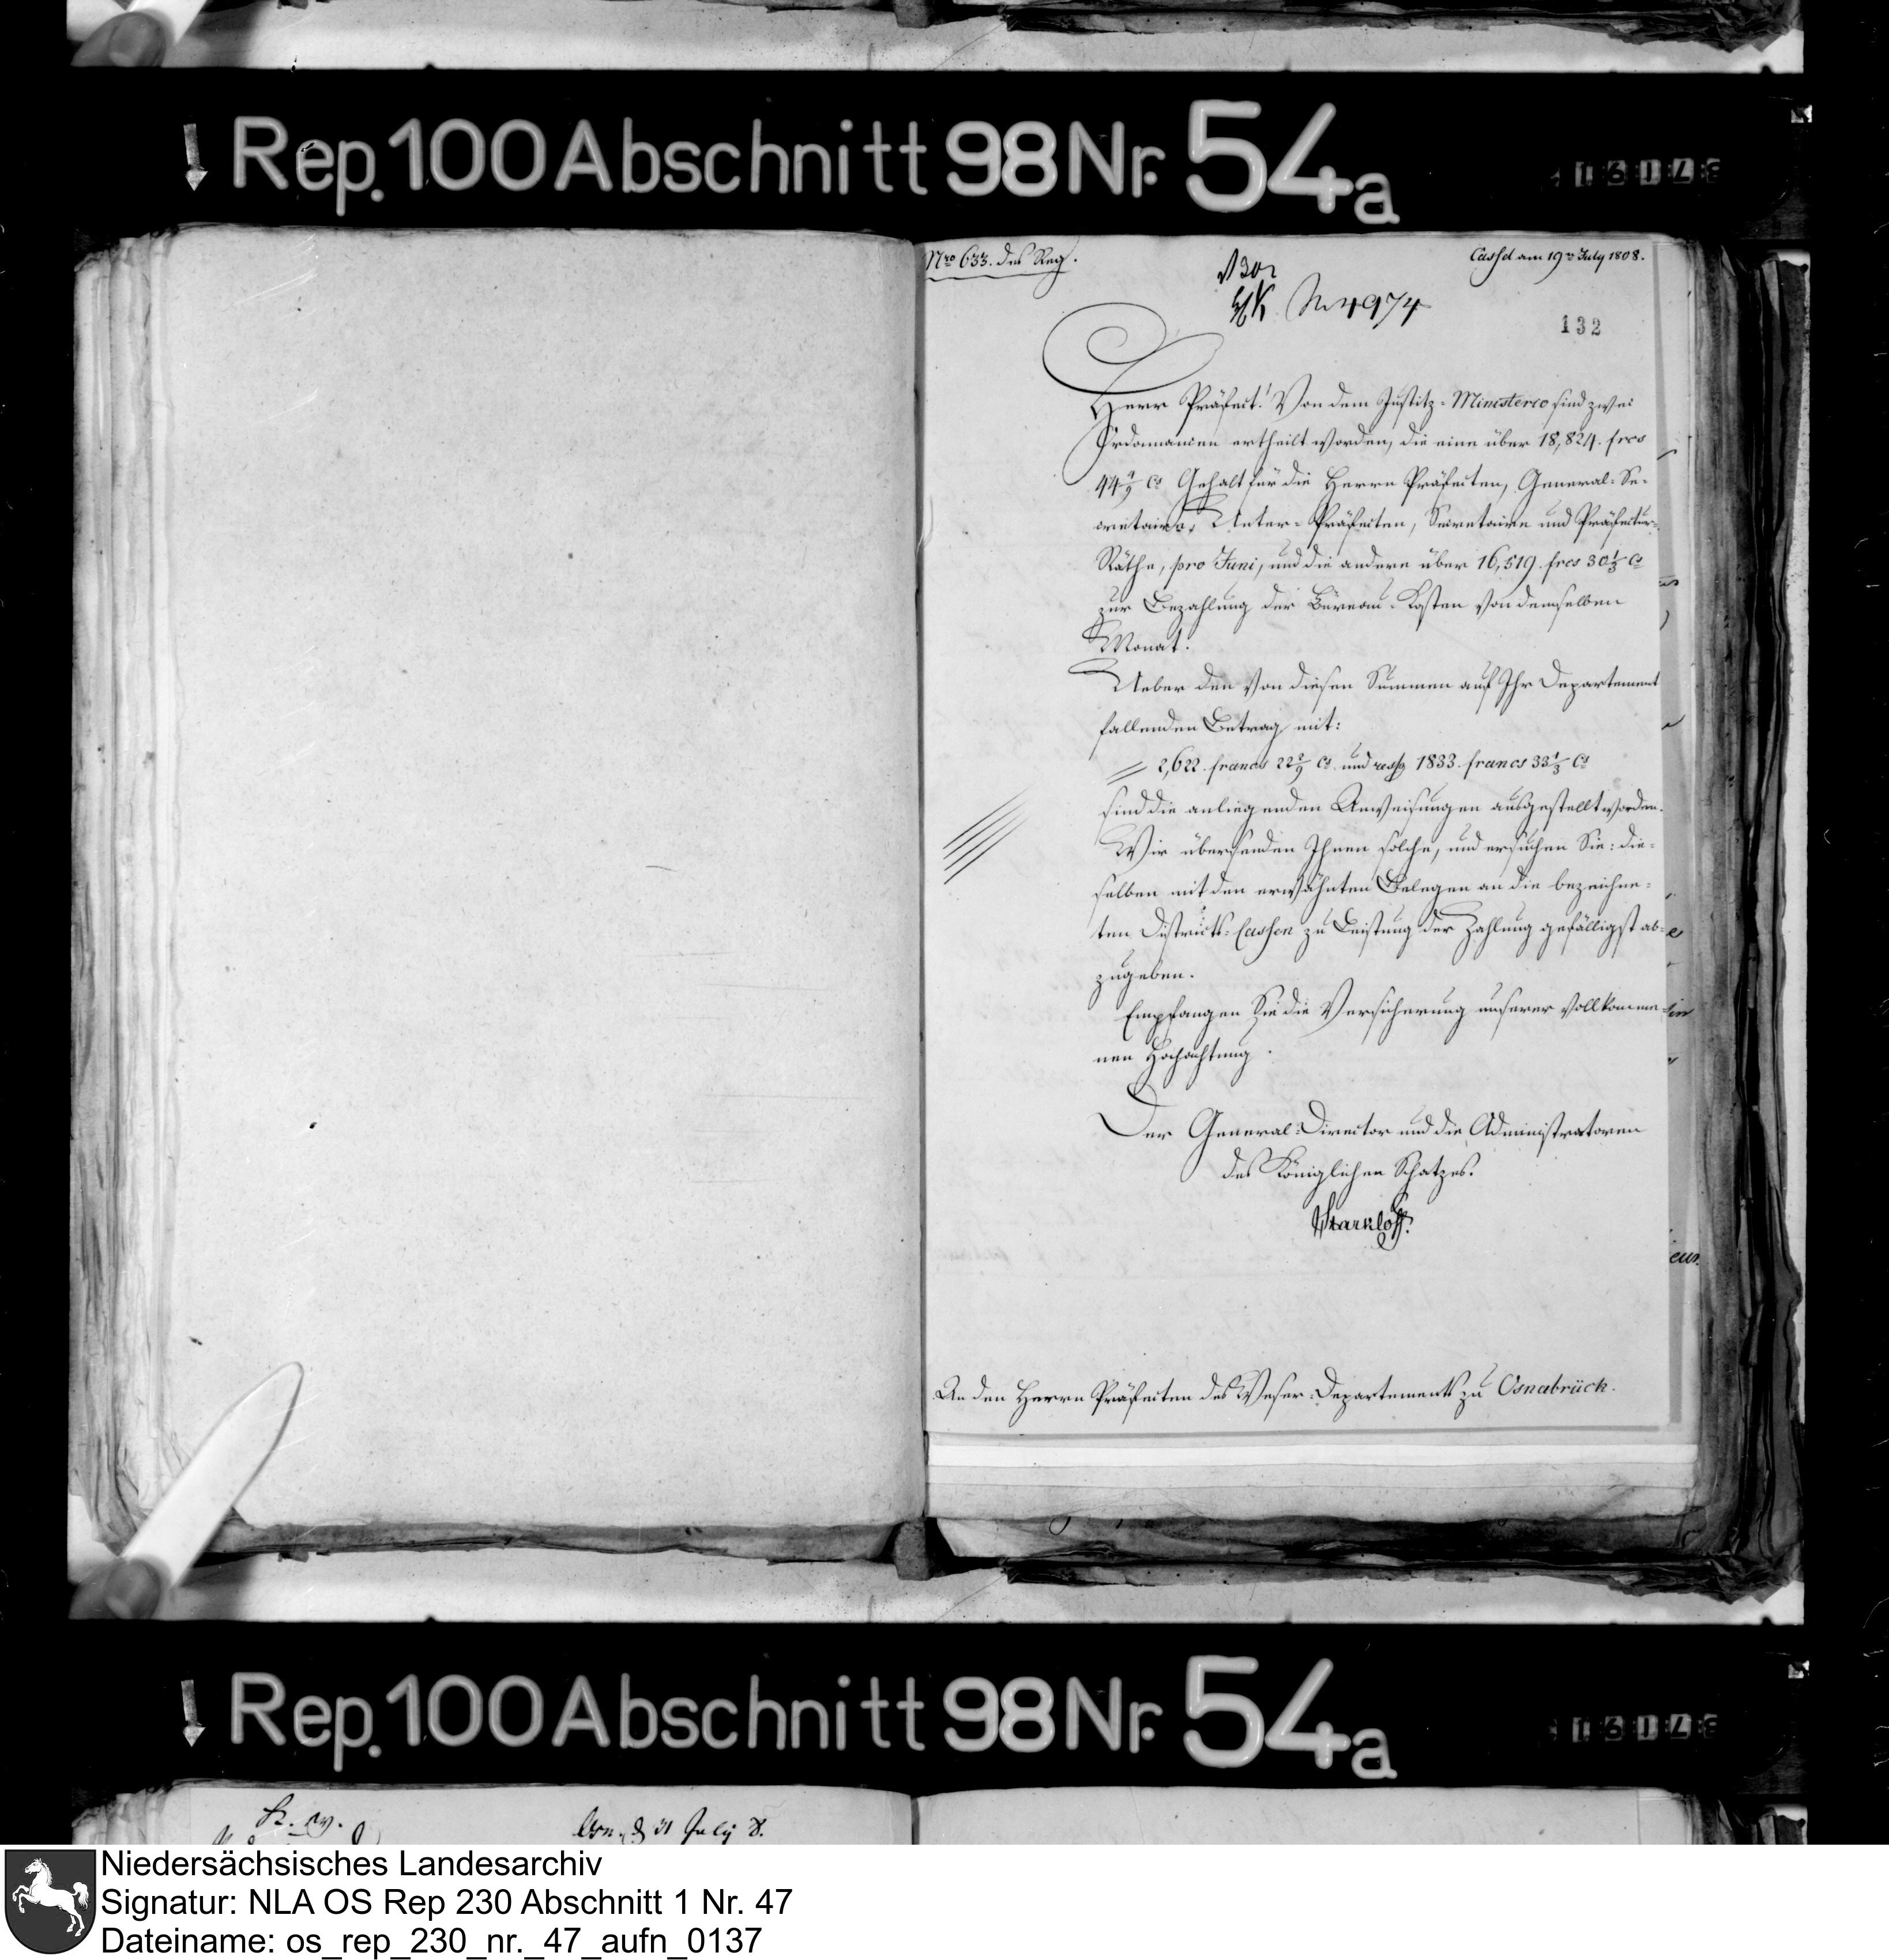 Rep. 100 Abschnitt 98 Nr. 54a
Nro 633. des Reg.
Cassel am 19ten July 1808.
N 4974
132
Herr Präfect! Von dem Justitz-Ministerio sind zwei
Ordonnancen ertheilt worden, die eine über 18,824. frcs
44 4/9 Cs Gehalt für die Herrn Präfecten, General-Se-
cretaire, Unter-Präfecten, Secretaire und Präfectur-
Räthe, pro Juni, und die andere über 16,519. frcs 30 1/3 Cs
zur Bezahlung der Büreau-Kosten von demselben
Monat.
Ueber den von diesen Summen auf Ihr Departement
fallenden Betrag mit:
2,622. francs 22 2/9 Cs. und resp 1833. francs 33 1/3 Cs
sind die anliegenden Anweisungen ausgestellt worden.
Wir übersenden Ihnen solche, und ersuchen Sie: die-
selben mit den erwähnten Belegen an die bezeichne-
ten Districts-Cassen zu Leistung der Zahlung gefälligst ab-
zugeben.
Empfangen Sie die Versicherung unserer vollkomme-
nen Hochachtung.
Der General-Director und die Administratoren
des Königlichen Schatzes.
Starkloff.
An den Herrn Präfecten des Weser-Departements zu Osnabrück.
Rep. 100 Abschnitt 98 Nr. 54a
Osn. d 31 July 8.
Niedersächsisches Landesarchiv
Signatur: NLA OS Rep 230 Abschnitt 1 Nr. 47
Dateiname: os_rep_230_nr._47_aufn_0137